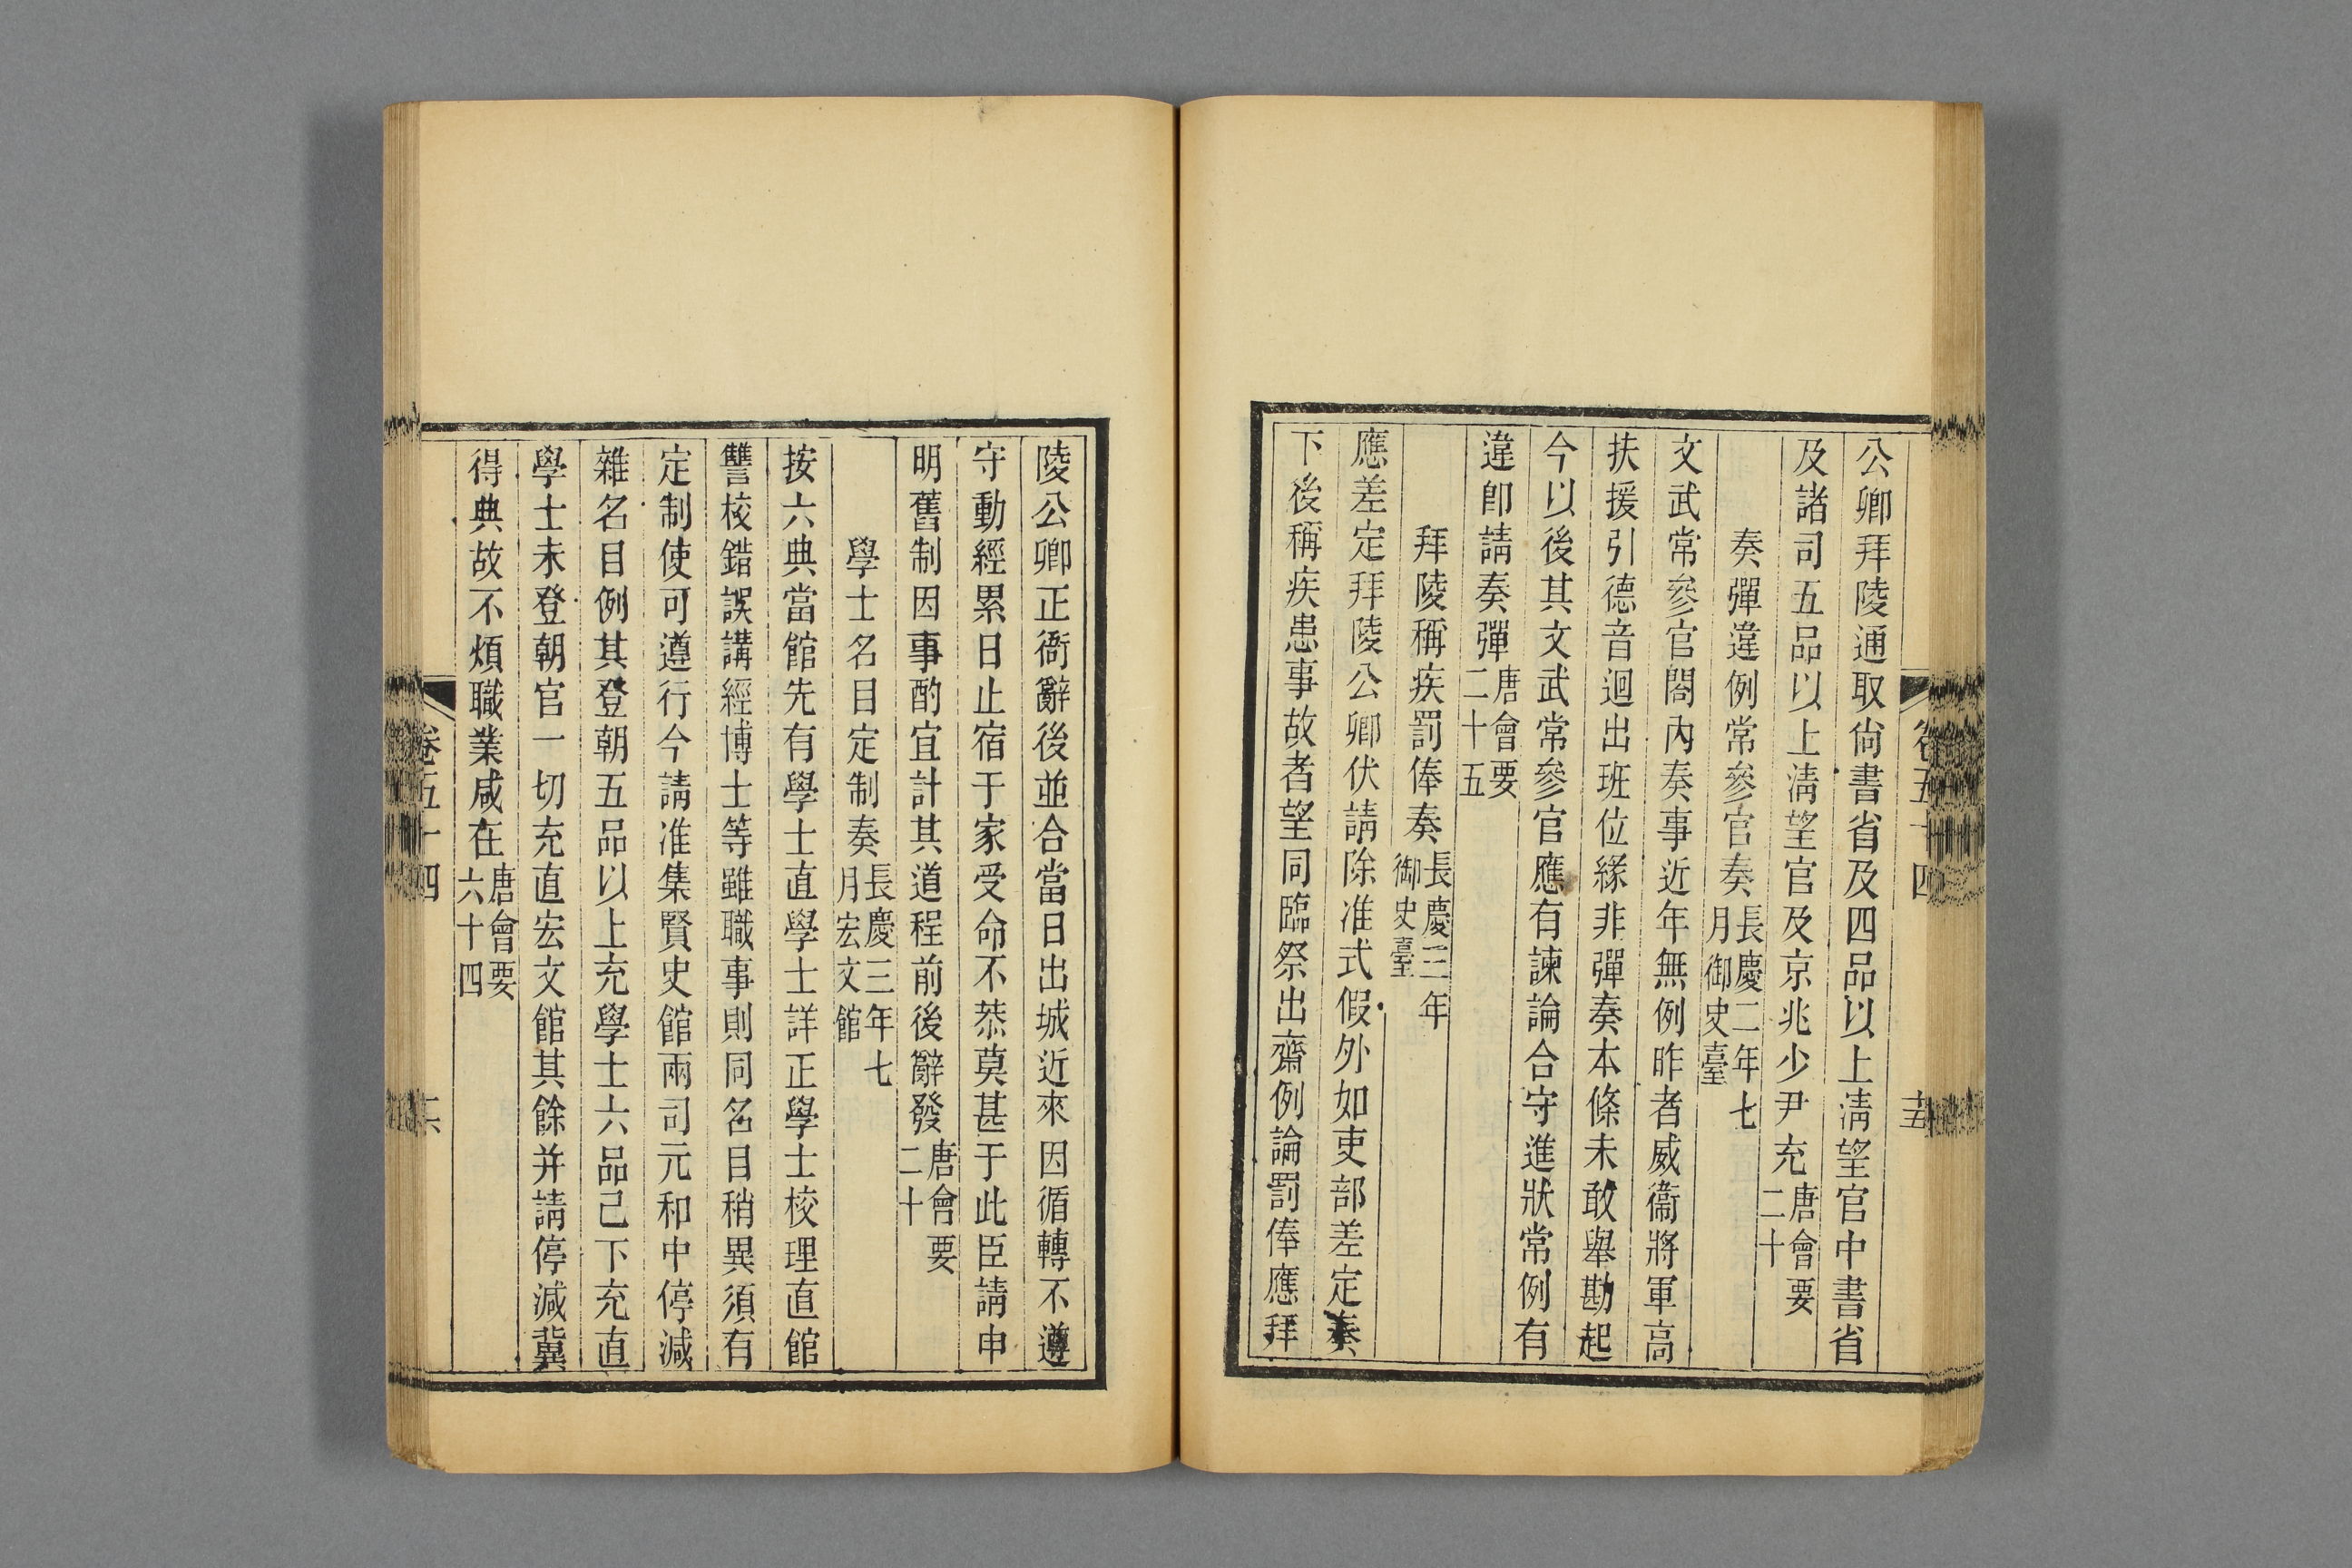 公卿拜陵通取尙書省及四品以上淸望官中書省
及諸司五品以上淸望官及京兆少尹充唐會要二十
奏彈違例常參官奏長慶二年七月御史臺
文武常參官閤內奏事近年無例昨者威衞將軍高
扶援引德音迴出班位緣非彈奏本條未敢舉勘起
今以後其文武常參官應有諫論合守進狀常例有
違卽請奏彈唐會要二十五
拜陵稱疾罰俸奏長慶三年御史臺
應差定拜陵公卿伏請除准式假外如吏部差定奏
下後稱疾患事故者望同臨祭出齋例論罰俸應拜
卷五十四
陵公卿正衙辭後並合當日出城近來因循轉不遵
守動經累日止宿于家受命不恭莫甚于此臣請申
明舊制因事酌宜計其道程前後辭發唐會要二十
學士名目定制奏長慶三年七月宏文館
按六典當館先有學士直學士詳正學士校理直館
讐校錯誤講經博士等雖職事則同名目稍異須有
定制使可遵行今請准集賢史館兩司元和中停減
雜名目例其登朝五品以上充學士六品已下充直
學士未登朝官一切充直宏文館其餘并請停減冀
得典故不煩職業咸在唐會要六十四
卷五十四